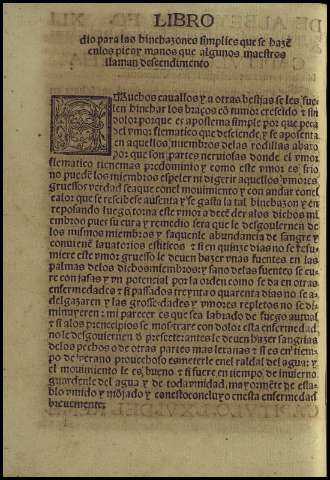 LIBRO
dio para las hinchazones simplices que se hazẽ
en los pies y manos que algunos maestros
llaman descendimiento
Muchos cavallos y a otras bestias se les sue
len hinchar los braços cõ tumor crescido & sin
dolor porque es apostema simple por que peca
del vmor flematico que desciende, y se aposenta
en aquellos miembros de las rodillas abaxo
por que son partes nerviosas donde el vmor
flematico tiene mas predominio y como este vmor es frio
no puedẽ los miembros espeler ni digerir aquellos vmores
gruessos verdad sea que con el movimiento y con andar con el
calor que se recibe se ausenta y se gasta la tal hinchazon y en
reposando luego, torna este vmor a decẽder a los dichos mi
embros pues su cura y remedio sera que le desgovierren de
los mismos miembros y saquẽle abundancia de sangre y
convienẽ lavatorios estiticos & si en quinze dias no se resu
miere este vmor gruesso le deuen hazer vnas fuentes en las
palmas de los dichos miembros: y sano de las fuentes se cu
re con rayas y un potencial por la orden como se da en otras
enfermedades & si passados treynta o quarenta dias no se a
delgazaren y las grossedades y vmores repletos no se di
minuyeren: mi parecer es que sea labrado de fuego autual
& si a los prencipios se mostrare con dolor esta enfermedad,
no le desgovierren o preseterantes le deuen hazer sangrias
de los pechos o de otras partes mas lexanas & si es en tiem
po de verano provechoso es meterle en el raldal del agua: y
el movimiento le es bueno & si fuere en tiempo de invierno
guardenle del agua y de toda vmidad, mayormẽte de esta
blo vmido y mojado y con esto concluyo en esta enfermedad
brevemente.